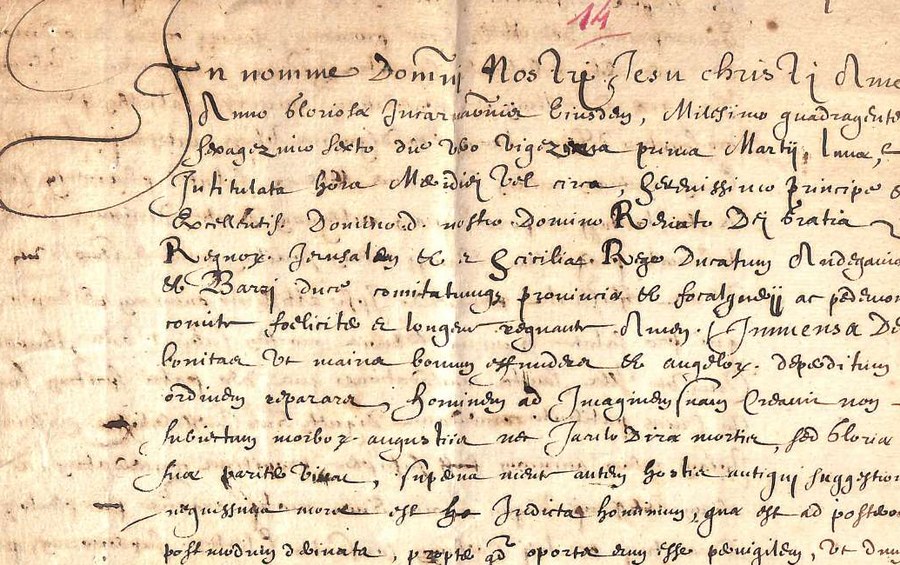 14
In nomine Domini Nostri Jesu christi Ame
Anno Gloriosæ Incarnaõnis Eiusdem, Milesimo quadragente
sexagezimo sexto die vero vigezima prima Martij, Luna,
Intitulata hora Meridiei vel circa, Serenissimo Principe
Excellentis. Domino d. nostro Domino Renato Dei Gratia
Regnor. Jerusalem et Siciliæ Rege Ducatum Andegavi
et Barri duce comitatuumq. provinciæ et focalquerij ac pedemon
comite foelicite et longeve regnante Amen. Immensa De
bonitas ut maius bonum effundere et angelor. deperditum
ordinem reparare, hominem ad Imaginem suam Creavit non
subiectum morbor. angustiis nec Jaculo Diræ mortis, sed Gloria
suæ, superveniente autem hostis antiqui suggestion
nequissima mors est Indicta hominum, quæ est ad postero
postmodum derivata, propter qd oportet eum esse pervigilem, ut dum